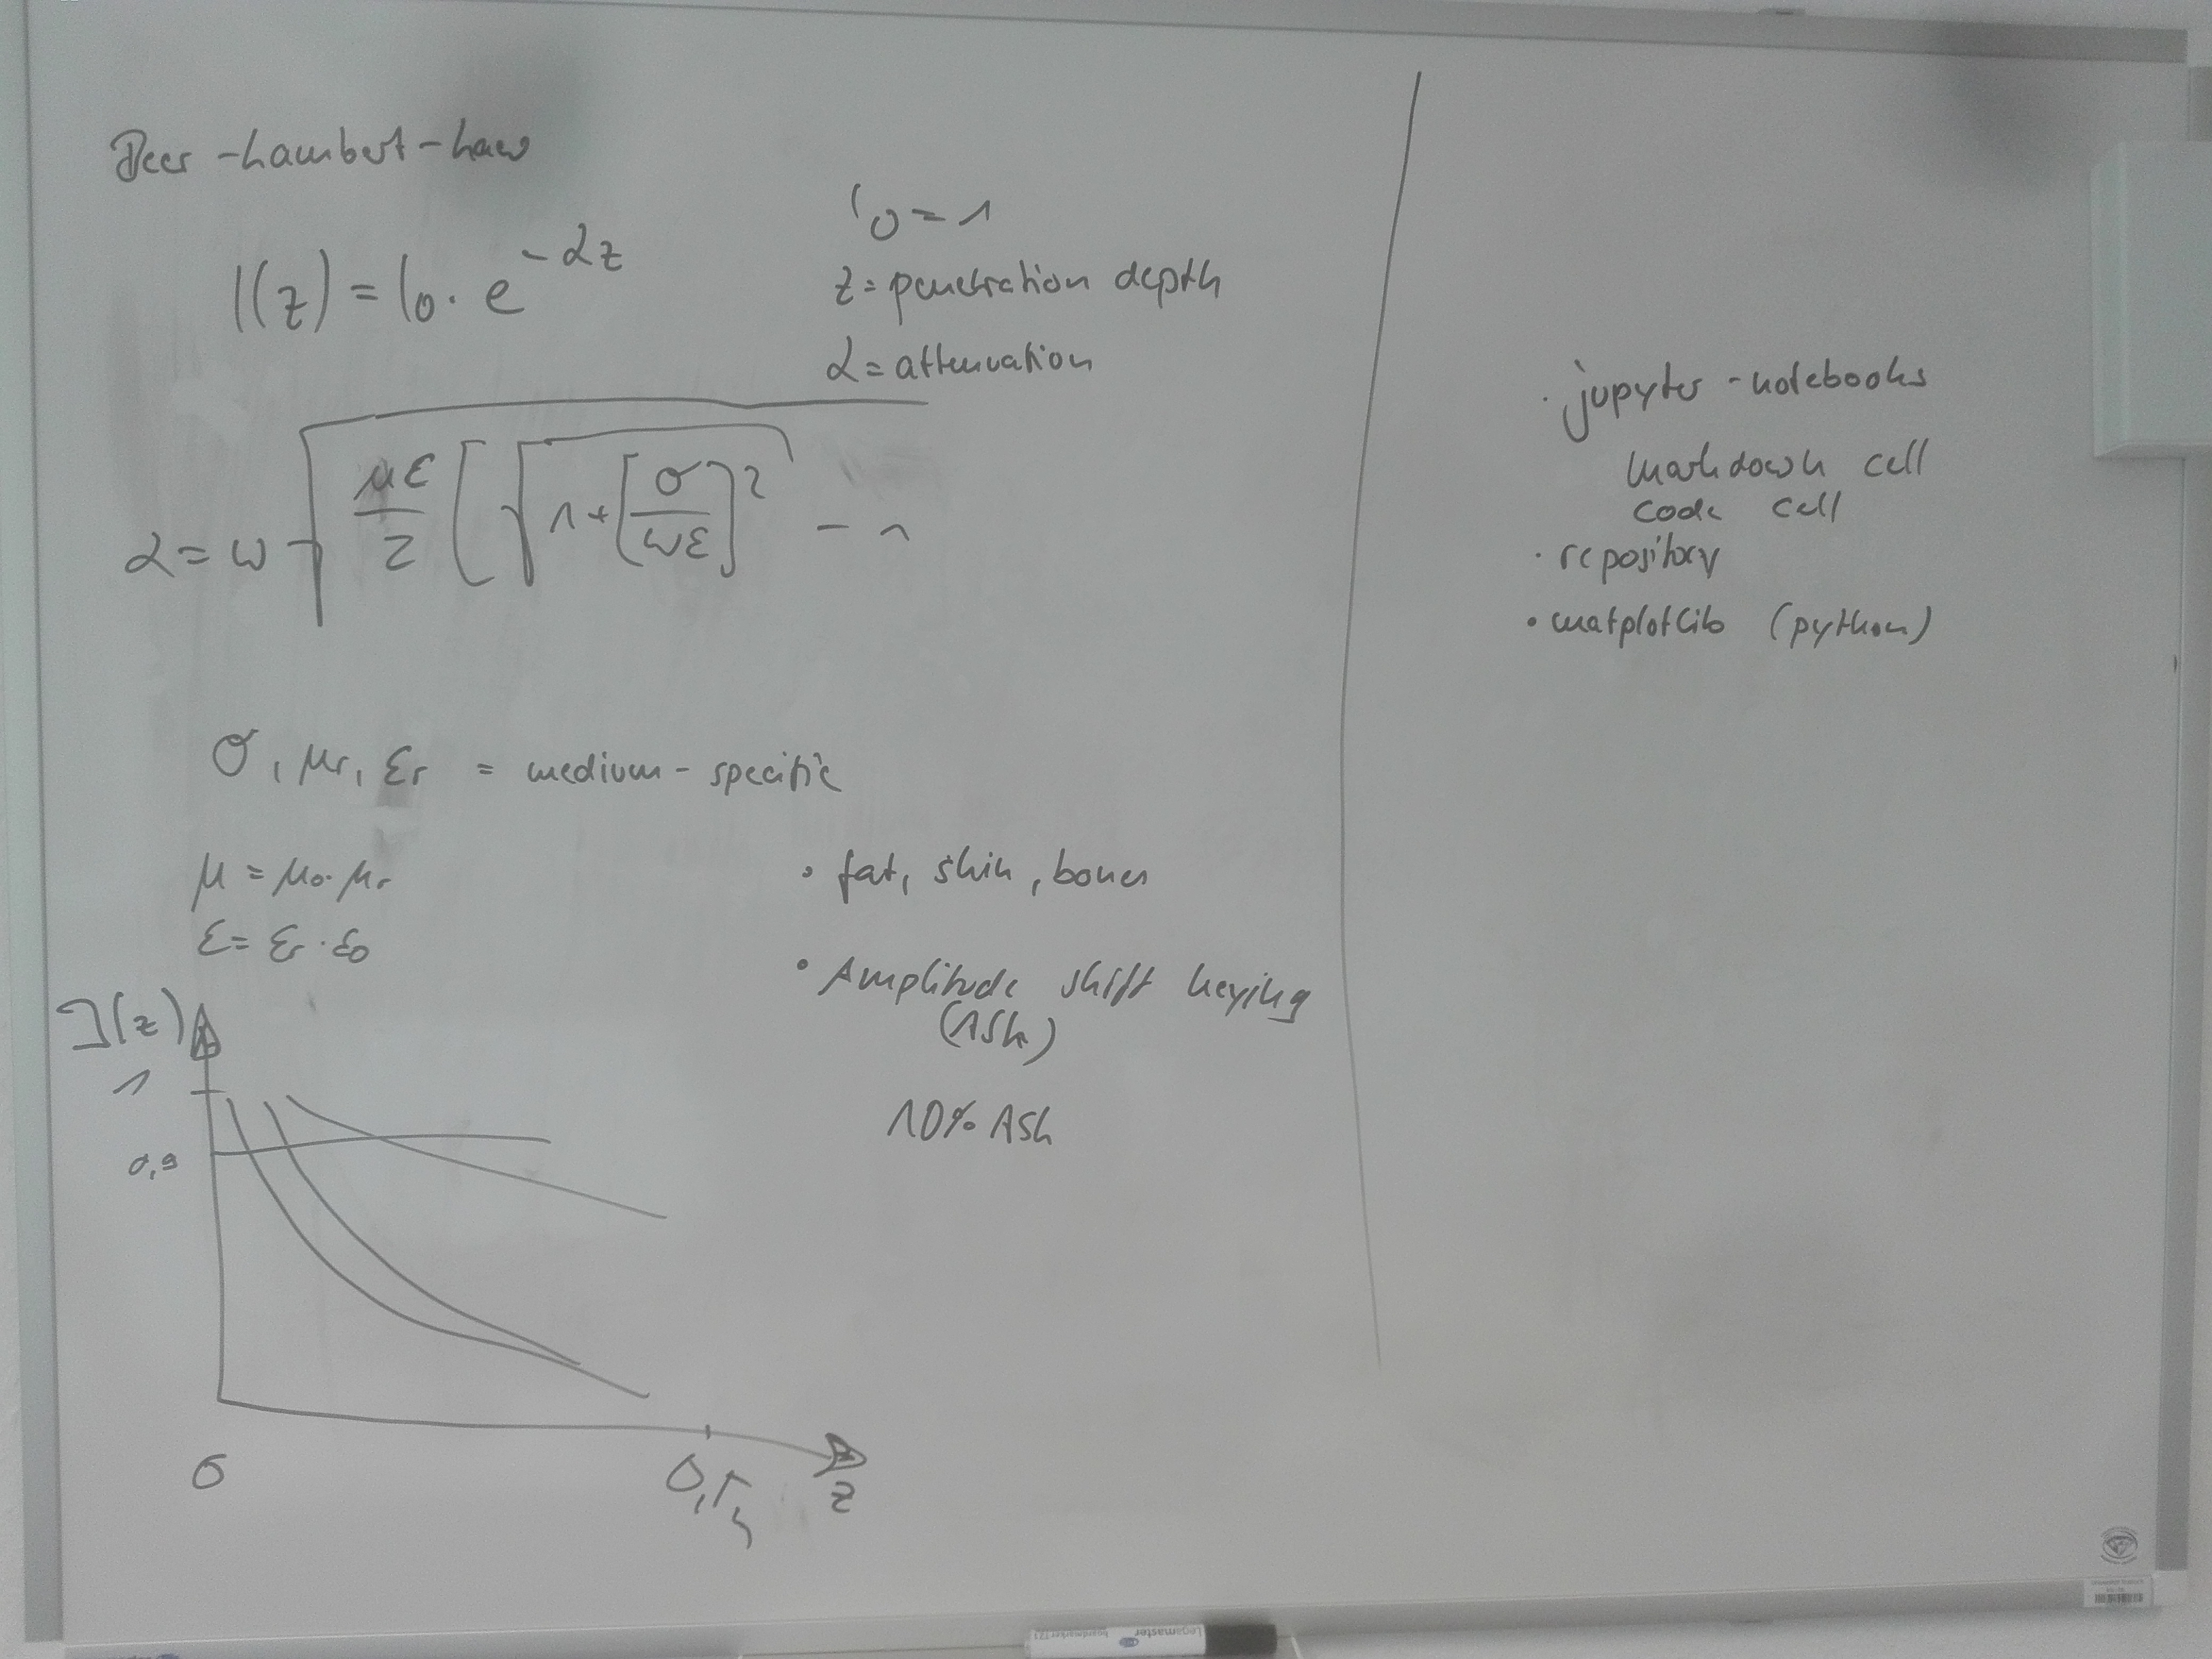 Beer-Lambert-Law
I(z) = I0 · e^-αz
I0 = 1
z = penetration depth
α = attenuation
α = ω √ με/2 [ √ 1 + [σ/ωε]² - 1
σ, μr, εr = medium-specific
μ = μ0 · μr
ε = εr · ε0
• fat, skin, bones
• Amplitude shift keying
(ASK)
10% ASK
I(z)
1
0,9
0
z
· jupyter-notebooks
markdown cell
code cell
· repository
• matplotlib (python)
Legamaster